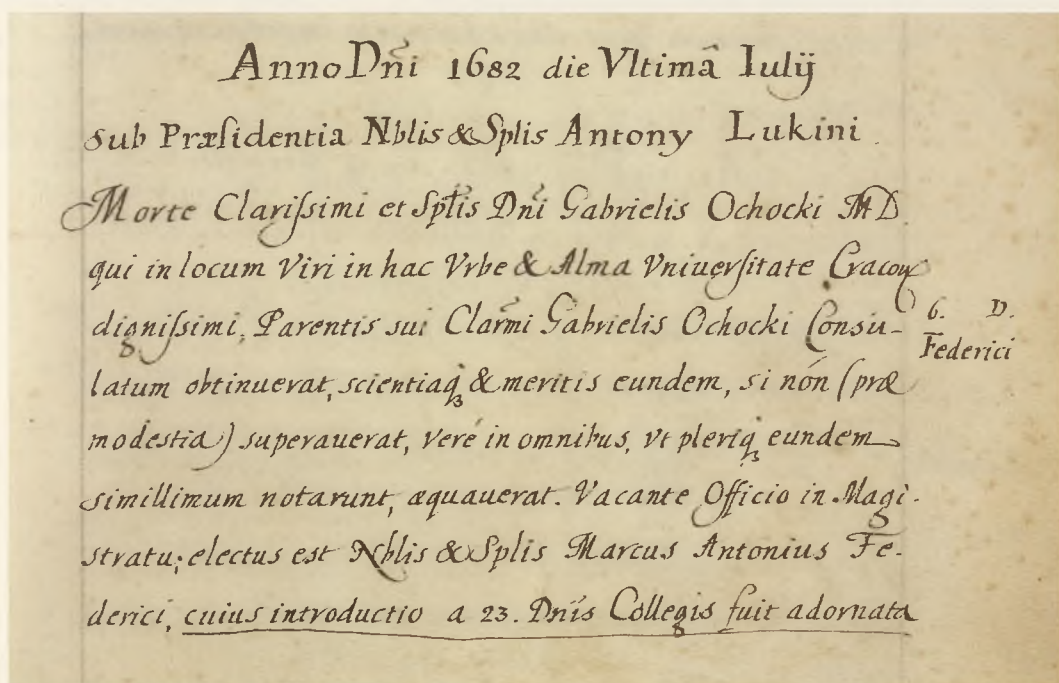 Anno Dñi 1682 die Vltimâ Iulij
sub Præsidentia Nblis & Splis Antony Lukini.
Morte Clarissimi et Sptis Dñi Gabrielis Ochocki MD.
qui in locum Viri in hac Vrbe & Alma Vniuersitate Cracou
dignissimi, Parentis sui Clarmi Gabrielis Ochocki Consu-
latum obtinuerat, scientiaqꝫ & meritis eundem, si nón (præ
modestia) superauerat, veré in omnibus, vt pleriqꝫ eundem
simillimum notarunt, æquauerat. Vacante Officio in Magi-
stratu; electus est Nblis & Splis Marcus Antonius Fe-
derici, cuius introductio a 23. Dnis Collegis fuit adornata
6. D.
Federici